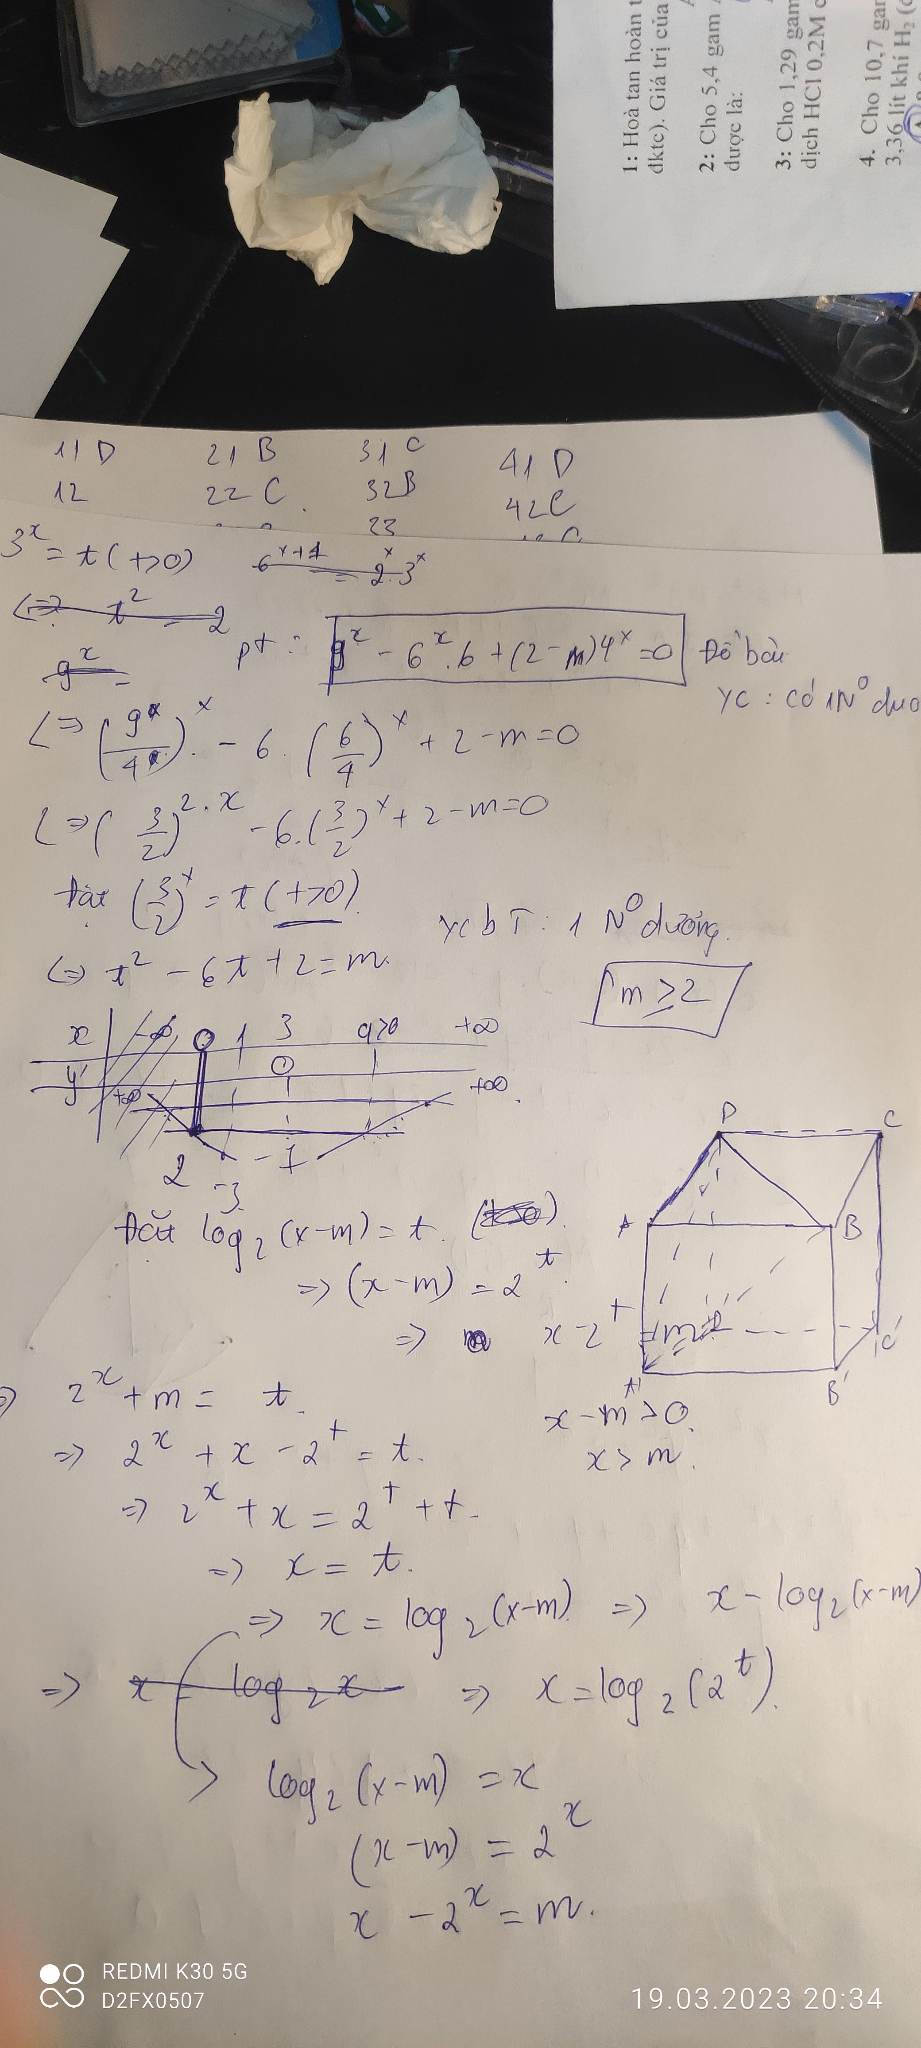 1: Hoà tan hoàn t
đktc). Giá trị của
2: Cho 5,4 gam
được là:
3: Cho 1,29 gam
dịch HCl 0,2M c
4. Cho 10,7 gar
3,36 lít khí H₂ (
11 D 21 B 31 C 41 D
12 22 C 32 B 42 C
23
3^x = t (t>0) 6^{x+1} = 2^x.3^x
<=> t^2 = 2
9^x =
pt: 9^x - 6^x.6 + (2-m)4^x = 0 Đề bài
YC: Có 1 N⁰ dươ
<=> (9/4)^x - 6.(6/4)^x + 2-m=0
<=> (3/2)^{2.x} - 6.(3/2)^x + 2-m=0
Đặt (3/2)^x = t (t>0)
YcbT: 1 N⁰ dương.
<=> t^2 - 6t + 2 = m.
m ≥ 2
x -∞ 0 1 3 +∞
y' 0
+∞ +∞
2 -3 -7
Đặt log₂(x-m) = t.
=> (x-m) = 2^t
=> x - 2^t = m
D C
A B
A' B' C'
x-m>0.
x>m.
2^x + m = t.
=> 2^x + x - 2^t = t.
=> 2^x + x = 2^t + t.
=> x = t.
=> x = log₂(x-m) => x - log₂(x-m)
=> x = log₂x => x = log₂(2^t).
log₂(x-m) = x
(x-m) = 2^x
x - 2^x = m.
REDMI K30 5G
D2FX0507
19.03.2023 20:34